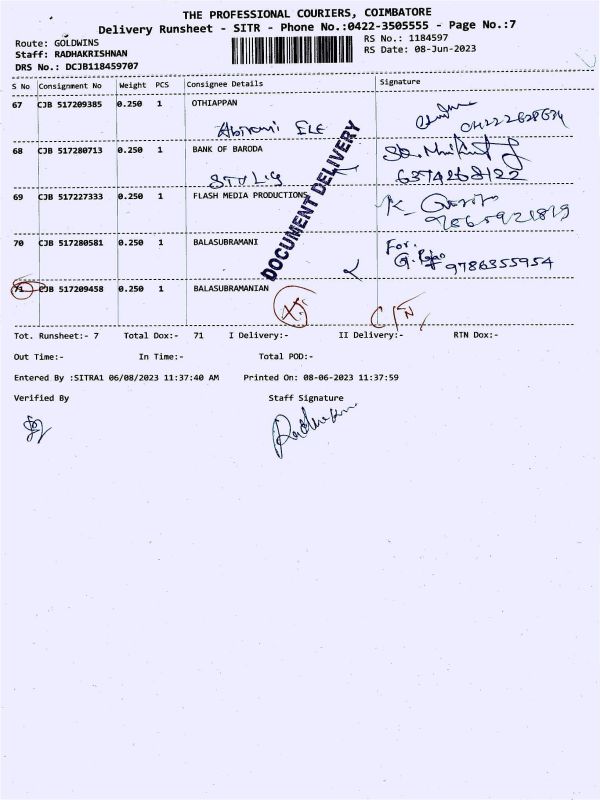 THE PROFESSIONAL COURIERS, COIMBATORE
Delivery Runsheet - SITR - Phone No.:0422-3505555 - Page No.:7
Route: GOLDWINS
RS No.: 1184597
Staff: RADHAKRISHNAN
RS Date: 08-Jun-2023
DRS No.: DCJB118459707
S No Consignment No Weight PCS Consignee Details Signature
67 CJB 517209385 0.250 1 OTHIAPPAN
Abirami ELE
68 CJB 517280713 0.250 1 BANK OF BARODA
6374268122
69 CJB 517227333 0.250 1 FLASH MEDIA PRODUCTIONS
DOCUMENT DELIVERY
70 CJB 517280581 0.250 1 BALASUBRAMANI
For.
9786355954
71 CJB 517209458 0.250 1 BALASUBRAMANIAN
Tot. Runsheet:- 7 Total Dox:- 71 I Delivery:- II Delivery:- RTN Dox:-
Out Time:- In Time:- Total POD:-
Entered By :SITRA1 06/08/2023 11:37:40 AM Printed On: 08-06-2023 11:37:59
Verified By Staff Signature